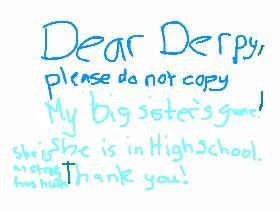 Dear Derpy,
please do not copy
My big sister's game!
She is in High school.
Thank you!
She is
as
has